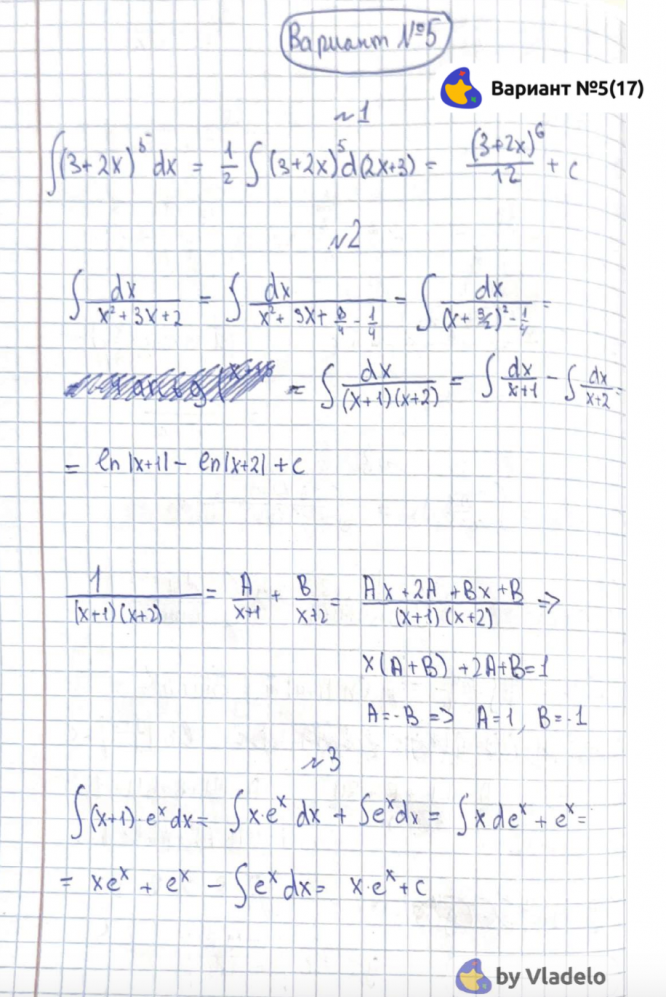 Вариант №5
Вариант №5(17)
№1
∫(3+2x)^5 dx = 1/2 ∫(3+2x)^5 d(2x+3) = (3+2x)^6/12 + c
№2
∫ dx/(x²+3x+2) = ∫ dx/(x²+3x+9/4-1/4) = ∫ dx/((x+3/2)²-1/4) =
= ∫ dx/((x+1)(x+2)) = ∫ dx/(x+1) - ∫ dx/(x+2) =
= ln|x+1| - ln|x+2| + c
1/((x+1)(x+2)) = A/(x+1) + B/(x+2) = (Ax+2A+Bx+B)/((x+1)(x+2)) =>
x(A+B)+2A+B=1
A=-B => A=1, B=-1
№3
∫(x+1)·e^x dx = ∫x·e^x dx + ∫e^x dx = ∫x de^x + e^x =
= xe^x + e^x - ∫e^x dx = x·e^x + c
by Vladelo